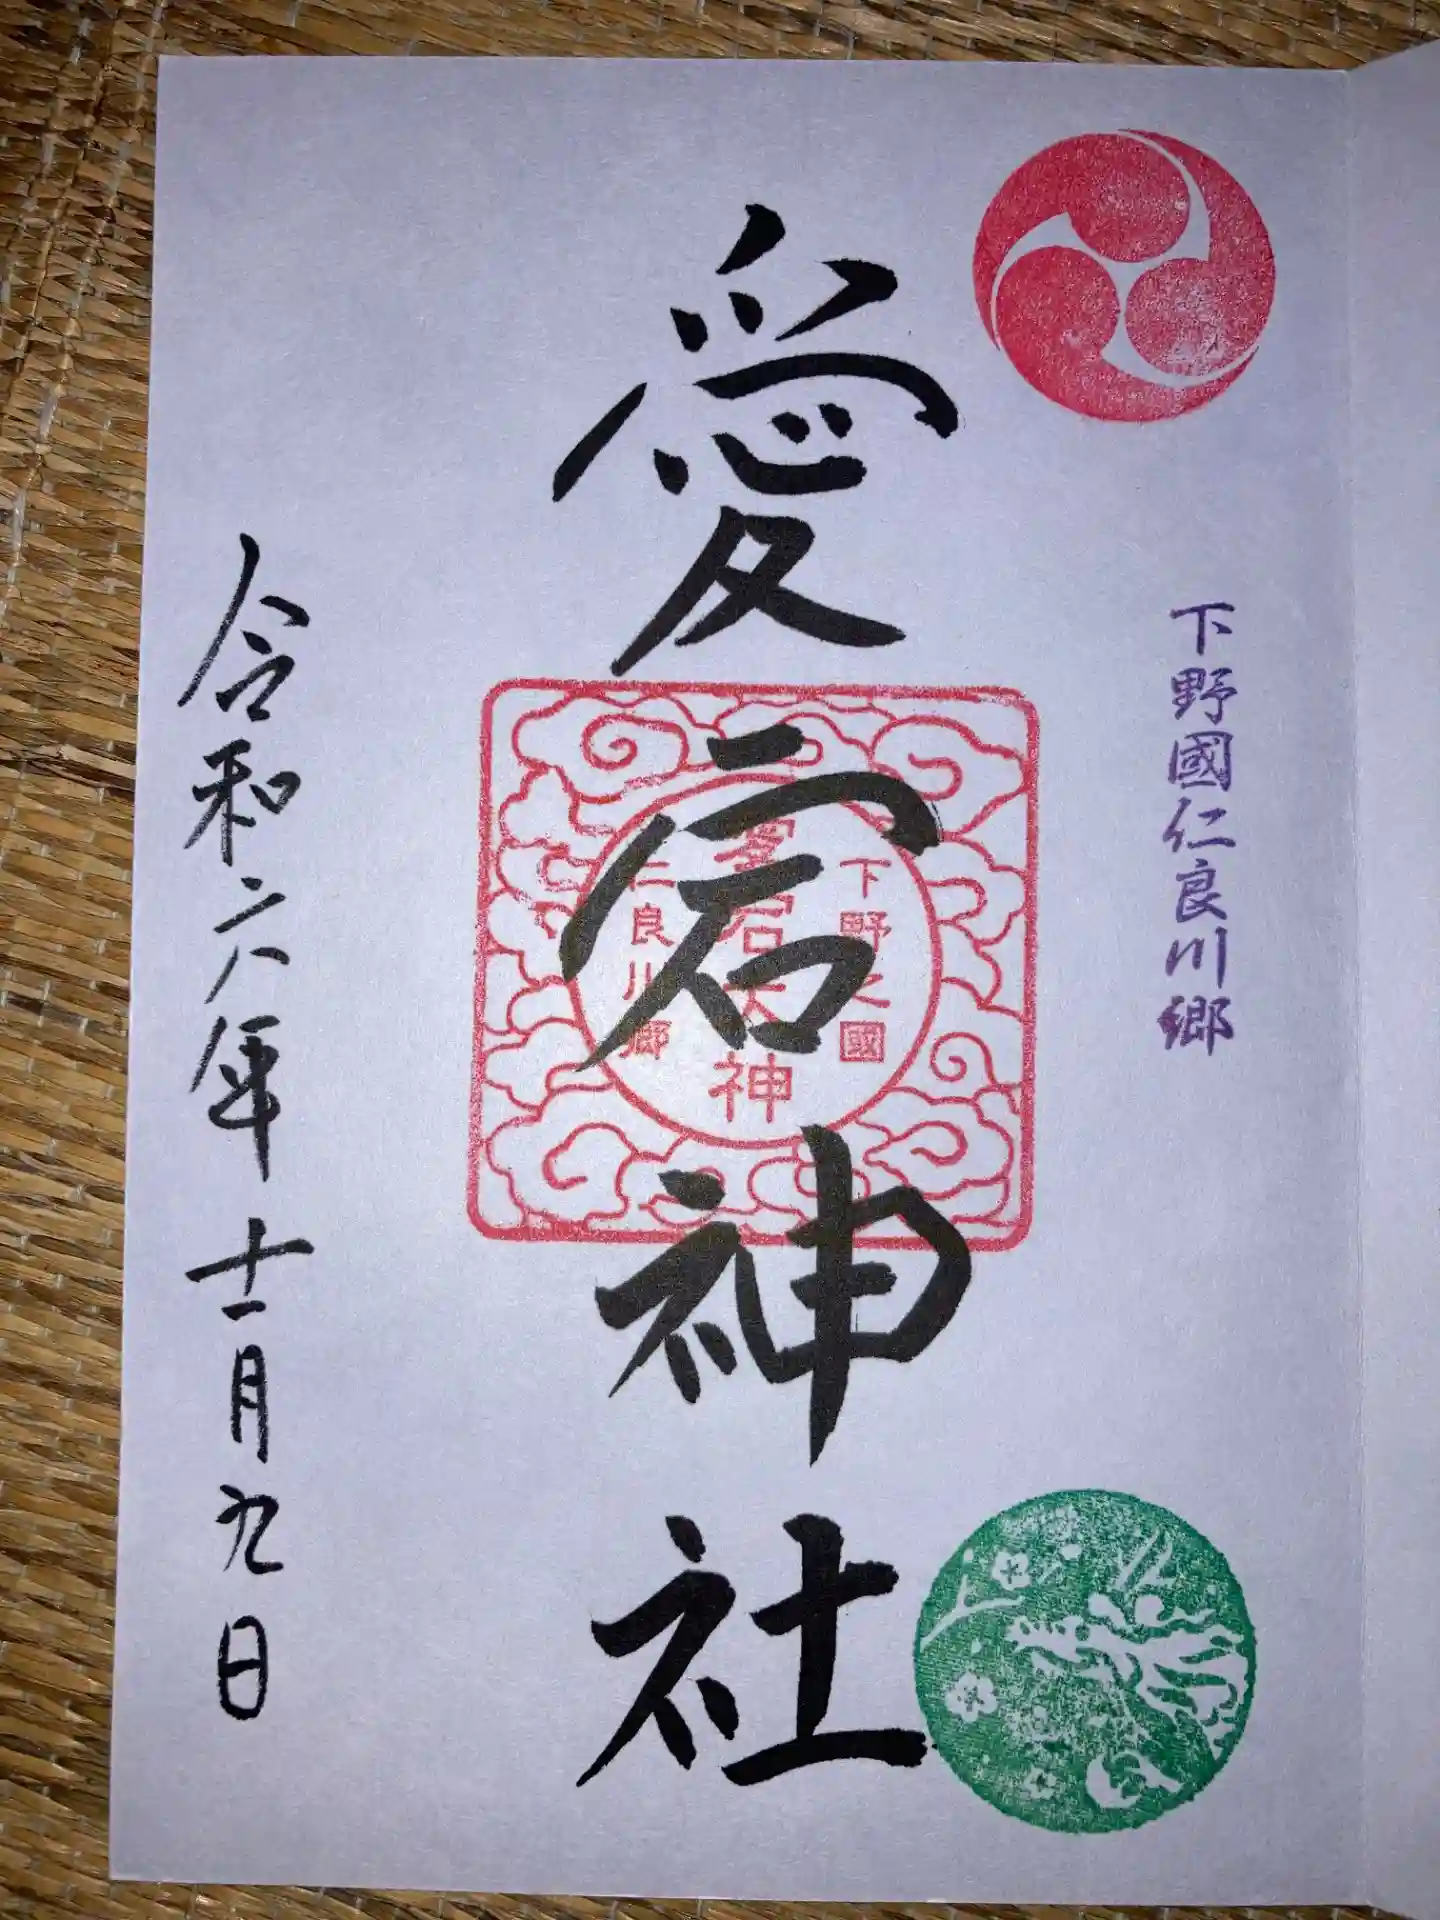 下野國仁良川郷
愛宕神社
下野之國
愛宕大神
仁良川郷
令和六年十一月九日